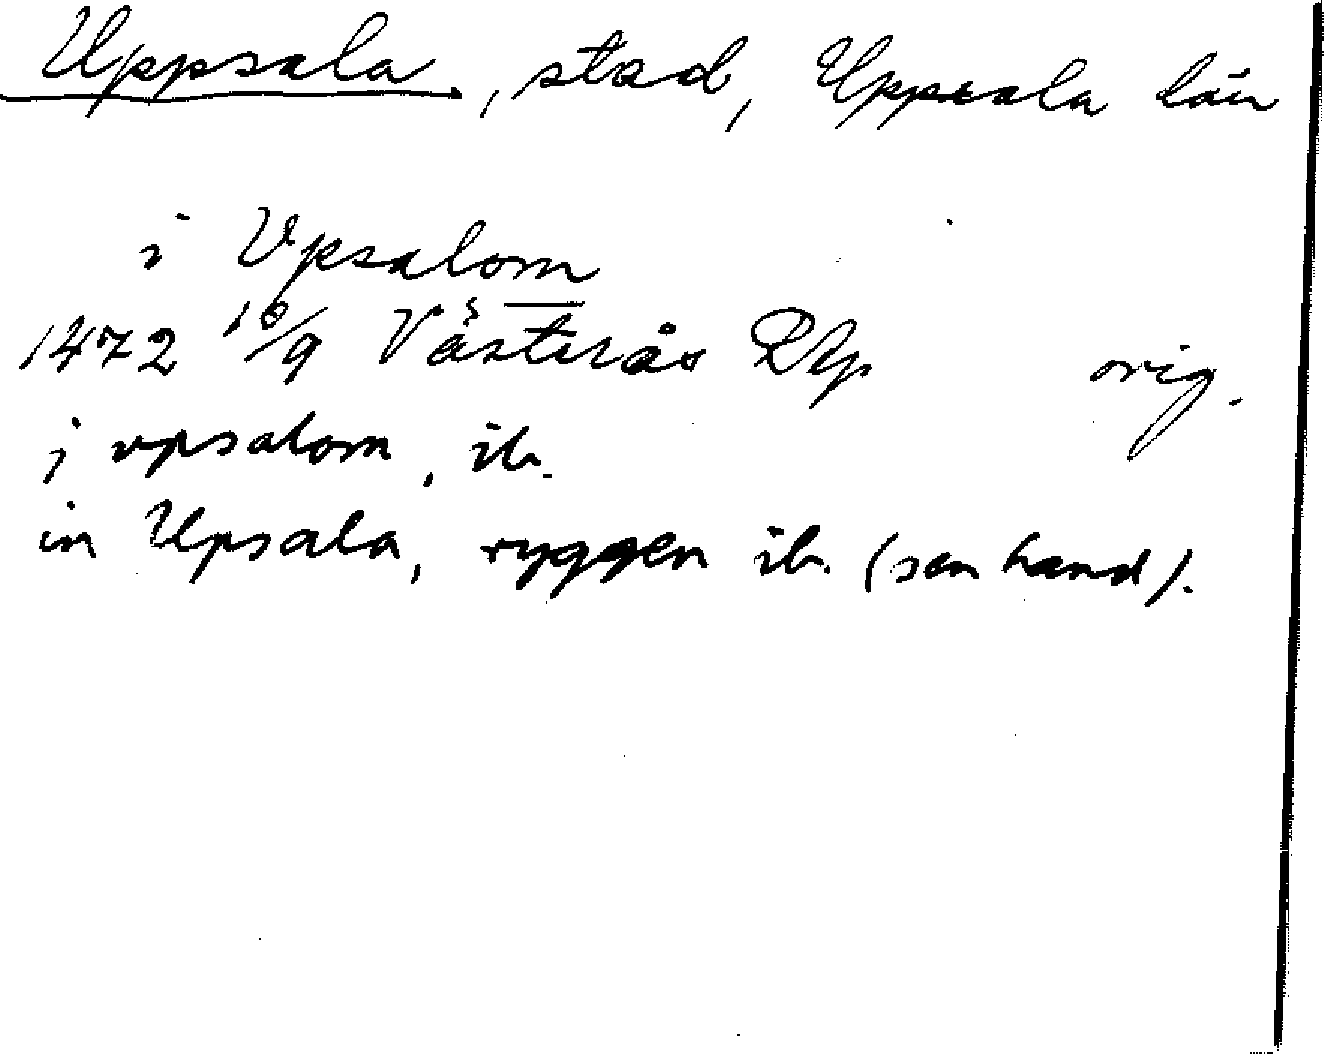 Uppsala, stad, Uppsala län
i Vpsalom
1472 16/9 Västerås RAp orig.
j vpsalom, ib.
in Upsala, ryggen ib. (sen hand).